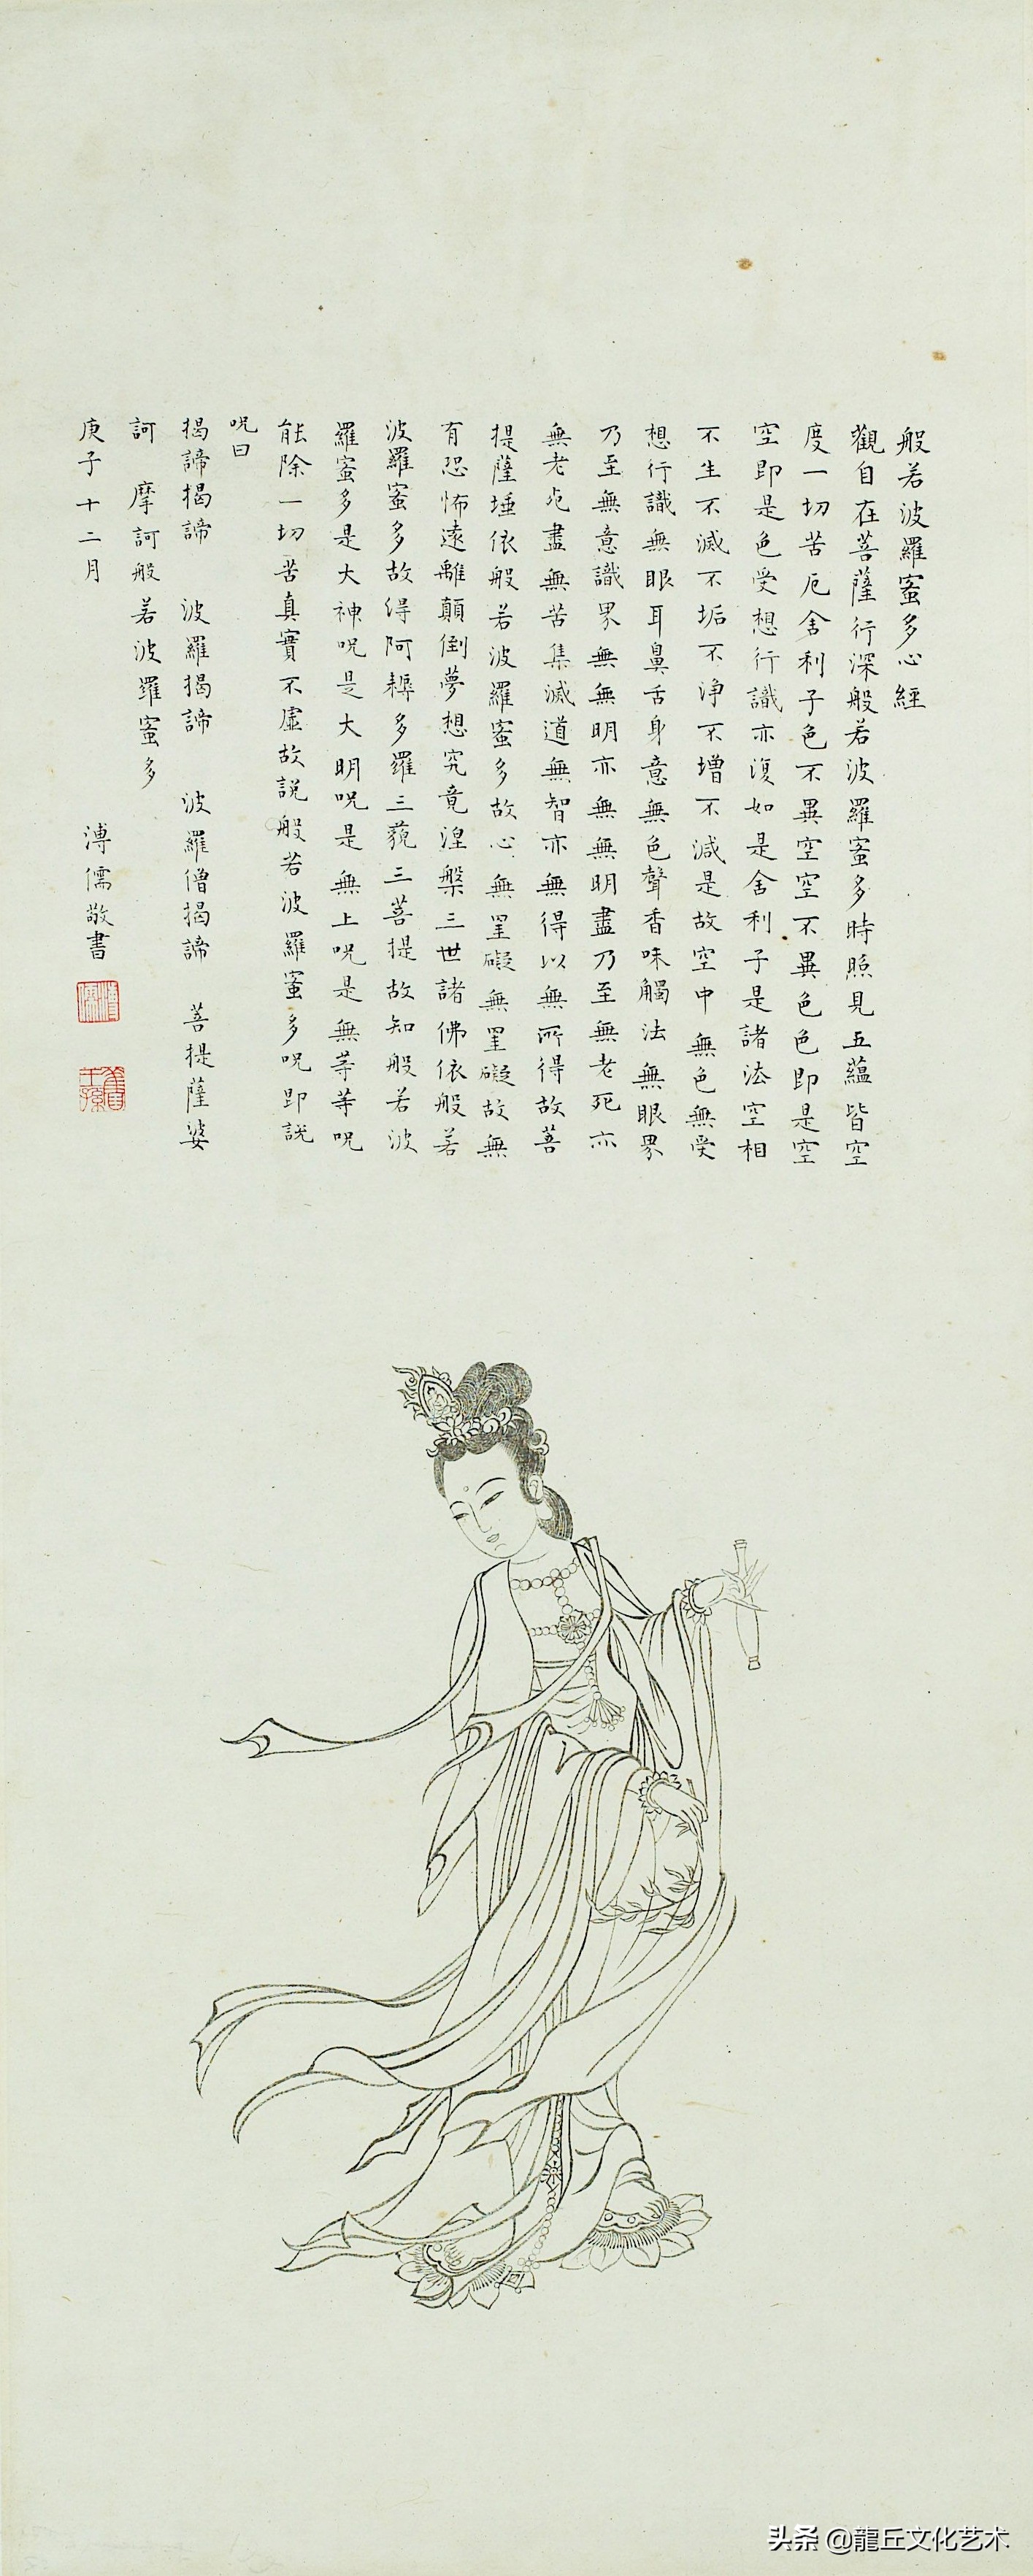 般若波羅蜜多心經
觀自在菩薩行深般若波羅蜜多時照見五蘊皆空
度一切苦厄舍利子色不異空空不異色色即是空
空即是色受想行識亦復如是舍利子是諸法空相
不生不滅不垢不淨不增不減是故空中無色無受
想行識無眼耳鼻舌身意無色聲香味觸法無眼界
乃至無意識界無無明亦無無明盡乃至無老死亦
無老死盡無苦集滅道無智亦無得以無所得故菩
提薩埵依般若波羅蜜多故心無罣礙無罣礙故無
有恐怖遠離顛倒夢想究竟涅槃三世諸佛依般若
波羅蜜多故得阿耨多羅三藐三菩提故知般若波
羅蜜多是大神呪是大明呪是無上呪是無等等呪
能除一切苦真實不虛故説般若波羅蜜多呪即説
呪曰
揭諦揭諦 波羅揭諦 波羅僧揭諦 菩提薩婆
訶 摩訶般若波羅蜜多
庚子十二月 溥儒敬書
溥儒
舊王孫
头条 @龍丘文化艺术